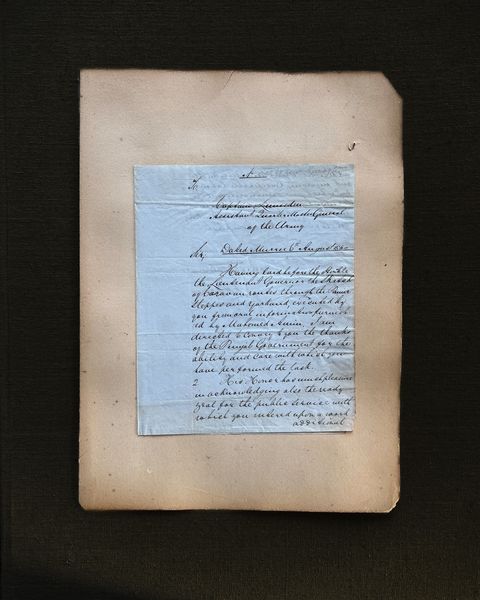 To
Captain Lumsden
Assistant Quarter Master General
of the Army
Sir, Dated Murree 6th August
Having laid before the Honble
the Lieutenant Governor the
of Caravan routes through the Pamir
Steppes and Yarkund, executed by
you from oral information furnish
ed by Mahomed Amin, I am
directed to convey to you the thanks
of the Punjab Government for the
ability and care with which you
have performed the task.
2 His Honor has much pleasure
in acknowledging also the ready
zeal for the public service with
which you entered upon a work
additional